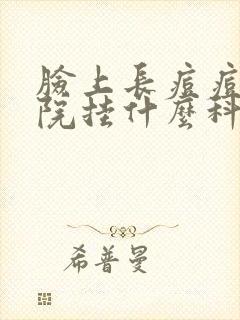 臉上長痘痘
院挂什麼科
希普曼